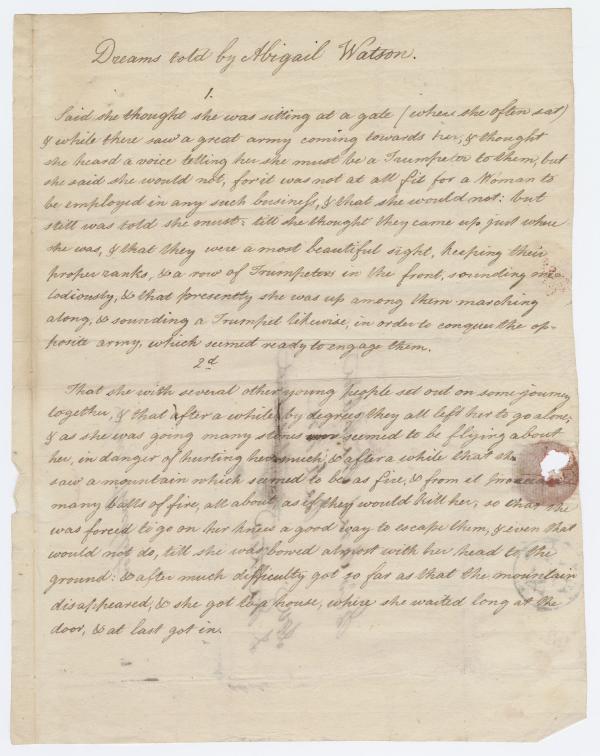 Dreams told by Abigail Watson.
1.
Said she thought she was sitting at a gate (where she often sat)
& while there saw a great army coming towards her, & thought
she heard a voice telling her she must be a Trumpeter to them, but
she said she would not, for it was not at all fit for a Woman to
be employed in any such business, & that she would not: but
still was told she must: till she thought they came up just where
she was, & that they were a most beautiful sight, keeping their
proper ranks, & a row of Trumpeters in the front, sounding me-
lodiously, & that presently she was up among them marching
along, & sounding a Trumpet likewise, in order to conquer the op-
posite army, which seemed ready to engage them.
2d
That she with several other young people set out on some journey
together, & that after a while by degrees they all left her to go alone;
& as she was going many stones seemed to be flying about
her, in danger of hurting her much, & after a while that she
saw a mountain which seemed to be as fire, & from it
many balls of fire, all about as if they would kill her, so that she
was forced to go on her knees a good way to escape them, & even that
would not do, till she was bowed almost with her head to the
ground: & after much difficulty got so far as that the mountain
disappeared, & she got to a house, where she waited long at the
door, & at last got in.